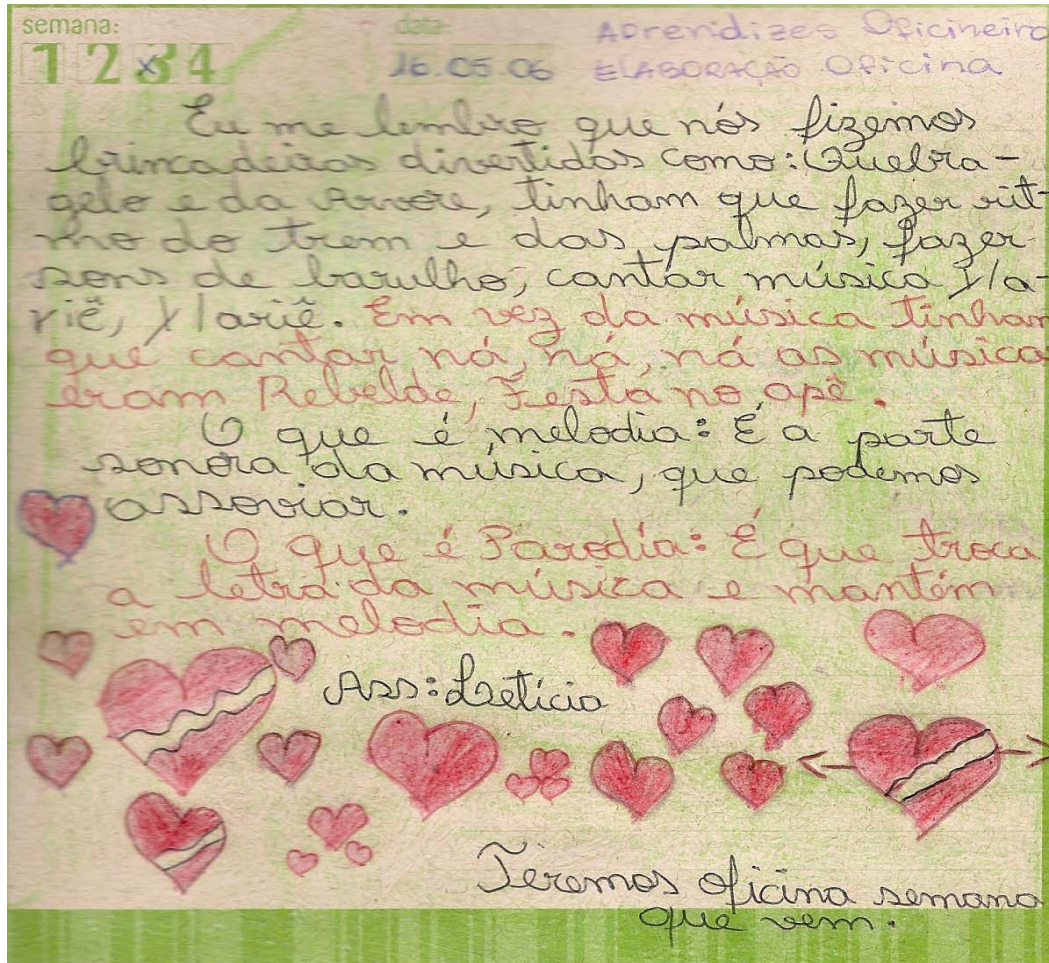 semana:
data:
Aprendizes Oficineiro
1 2 3 4
16.05.06
ELABORAÇÃO Oficina
Eu me lembro que nós fizemos
brincadeiras divertidas como: Quebra-
gelo e da Arvore, tinham que fazer rit-
mo do trem e das palmas, fazer
sons de barulho, cantar música Yla-
riê, Ylariê. Em vez da música tinham
que cantar ná, ná, ná as música
eram Rebelde, Festa no apê.
O que é melodia: É a parte
sonora da música, que podemos
assoviar.
O que é Parodia: É que troca
a letra da música e mantém
em melodia.
Ass: Leticia
Teremos oficina semana
que vem.